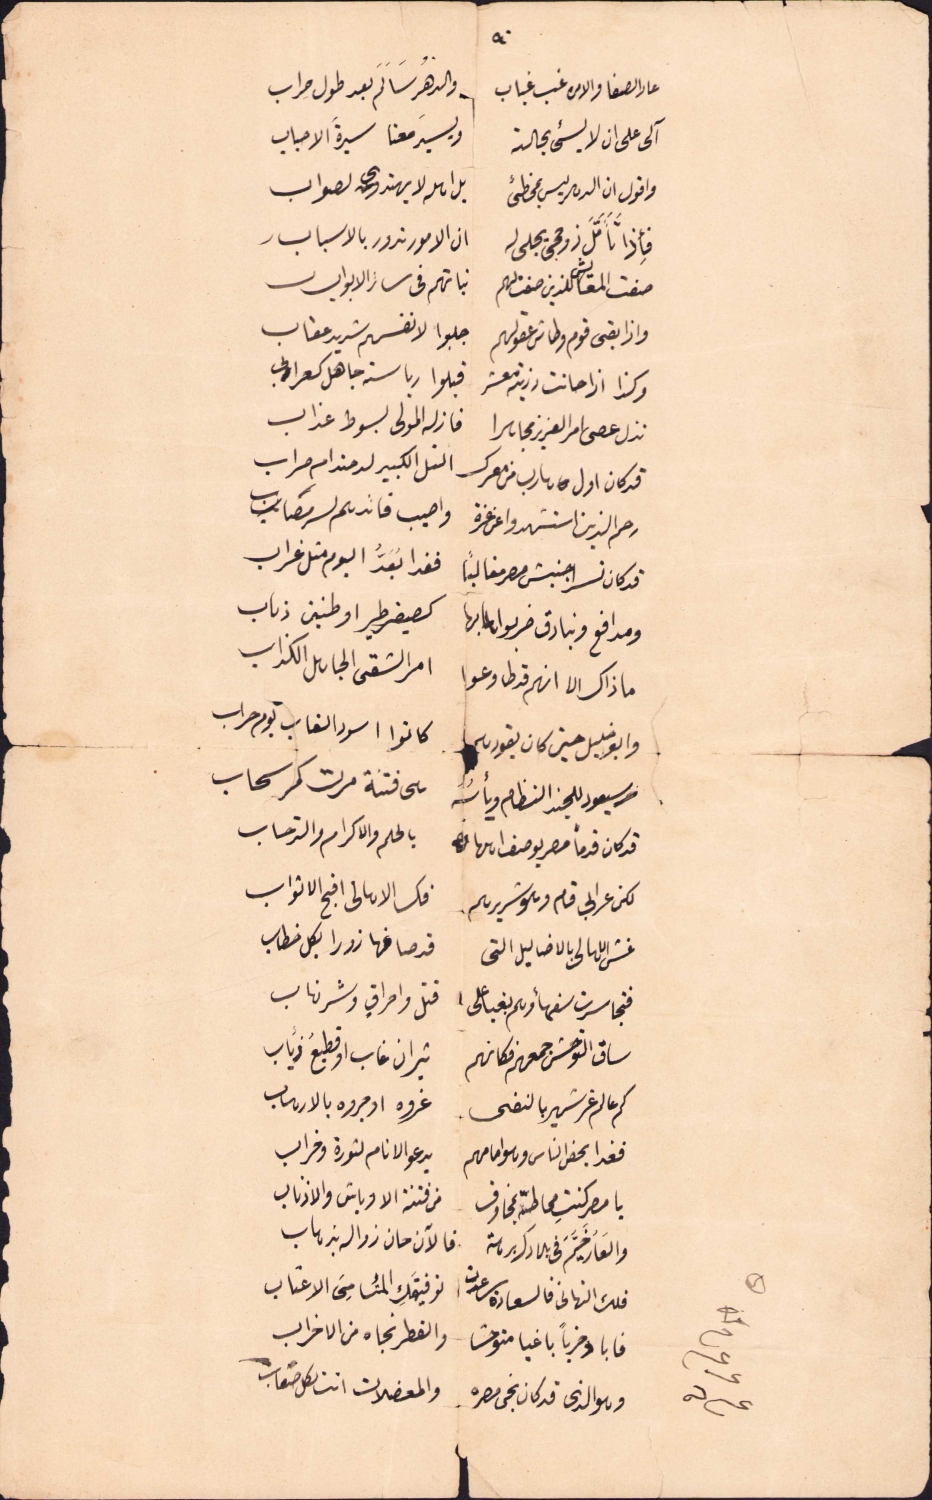 عاد الصفا والامن غب غياب والدهر سالم بعد طول حراب
آلى على ان لا يسئ بحالة ويسير معنا سيرة الاحباب
واقول ان الدهر ليس بمخطئ بل اهله لا يهتدوا لصواب
فإذا تأمل ذو حجى يجلى له ان الامور تدور بالاسباب
صفت المعايش للذين صفت لهم نياتهم فى سائر الابواب
واذا بغى قوم وطاش عقولهم جلبوا لانفسهم شديد عقاب
وكذا اذا حانت رزية معشر قبلوا رياسة جاهل كعرابى
نذل عصى امر العزيز مجاهرا فاذله المولى بسوط عذاب
قد كان اول هارب من معرك التل الكبير لدى صدام حراب
رحم الذين استشهدوا عن غرة واصيب قائدهم لسر مصاب
قد كان نسرا جيش مصر مغالبًا فغدا يُعَدُّ اليوم مثل غراب
ومدافع وبنادق ضربوا بها كصفير طير او طنين ذباب
ما ذاك الا انهم قد طاوعوا امر الشقى الجاهل الكذاب
وابو خليل حين كان يقودهم كانوا اسود الغاب يوم حراب
وسيعود للجند النظام وبأسه هى فتنة مرت كمر سحاب
قد كان قدماً مصر يوصف اهلها بالحلم والاكرام والترحاب
لكن عرابى قام وهو شريرهم فكسا الاهالى اقبح الاثواب
غش الاهالى بالاضاليل التى قد صاغها زورا بكل خطاب
فتجاسرت سفهاؤهم بغيا على قتل واحراق وشر نهاب
ساق التوحش جمعهم فكانهم ثيران غاب او قطيع ذئاب
كم عالم غر شهير بالتقى غروه او جروه بالارهاب
فغدا بحض الناس وهو امامهم يدعو الانام لثورة وخراب
يا مصر كنتِ محاطة بمخاوف من فتنة الاوباش والاذناب
والعار خيّم فى بلادك برهة فالآن حان زواله بذهاب
فلك التهانى فالسعادة ساعدت توفيقك المتسامىَ الاعتاب
فابادَ حزباً باغيا متوحشا والقطر نجاه من الاخراب
وهو الذى قد كان نجى مصره والمعضلات اتت بكل صعاب